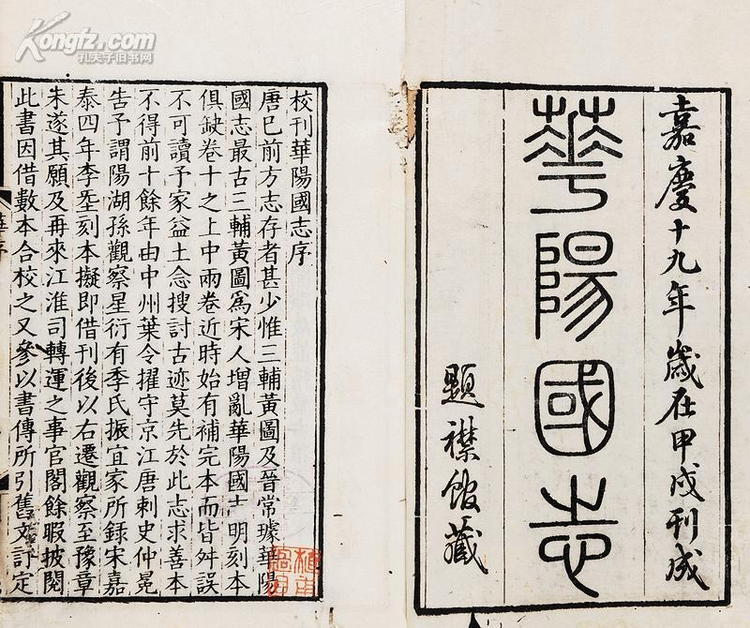 嘉慶十九年歲在甲戌刊成
華陽國志
題襟館藏
校刊華陽國志序
唐已前方志存者甚少惟三輔黃圖及晉常璩華陽
國志最古三輔黃圖爲宋人增亂華陽國志明刻本
俱缺卷十之上中兩卷近時始有補完本而皆舛誤
不可讀予家益土念搜討古迹莫先於此志求善本
不得前十餘年由中州葉令擢守京江唐刺史仲冕
告予謂陽湖孫觀察星衍有季氏振宜家所錄宋嘉
泰四年李𡌴刻本擬即借刊後以右遷觀察至豫章
未遂其願及再來江淮司轉運之事官閣餘暇披閱
此書因借數本合校之又參以書傳所引舊文訂定
Kongfz.com
孔夫子旧书网